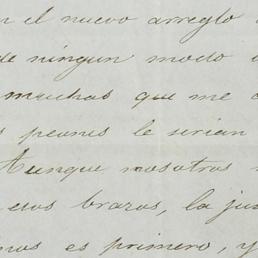 n el nuevo arreglo
de ningun modo
muchas que me
s peones le serian
Aunque nosotros
esos brazos, la jus
mos es primero, y